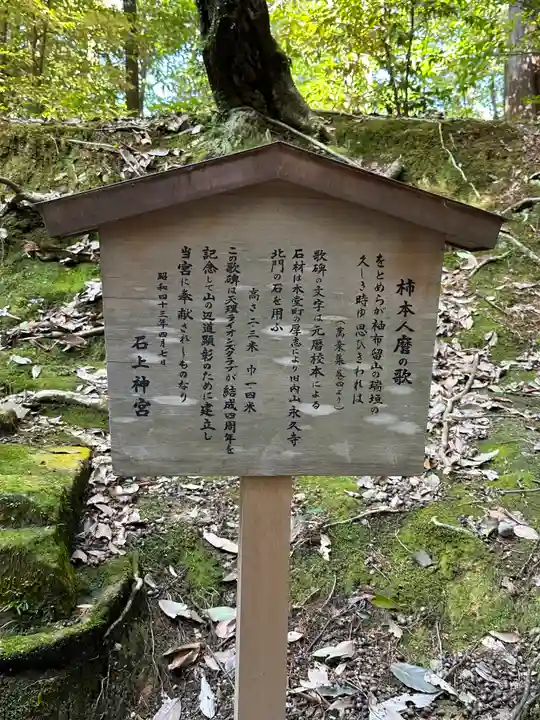 柿本人麿の歌
をとめらが袖布留山の瑞垣の
久しき時ゆ思ひきわれは
(萬葉集巻四より)
歌碑の文字は元暦校本による
石材は木堂町の厚志により旧内山永久寺
北門の石を用ふ
高さ二・二米 巾一・四米
この歌碑は天理ライオンズクラブが結成四周年を
記念して山の辺道顕彰のために建立し
当宮に奉献されしものなり
昭和四十三年四月七日
石上神宮